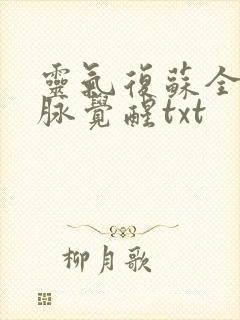 靈氣復蘇全
脉覺醒txt
柳月歌